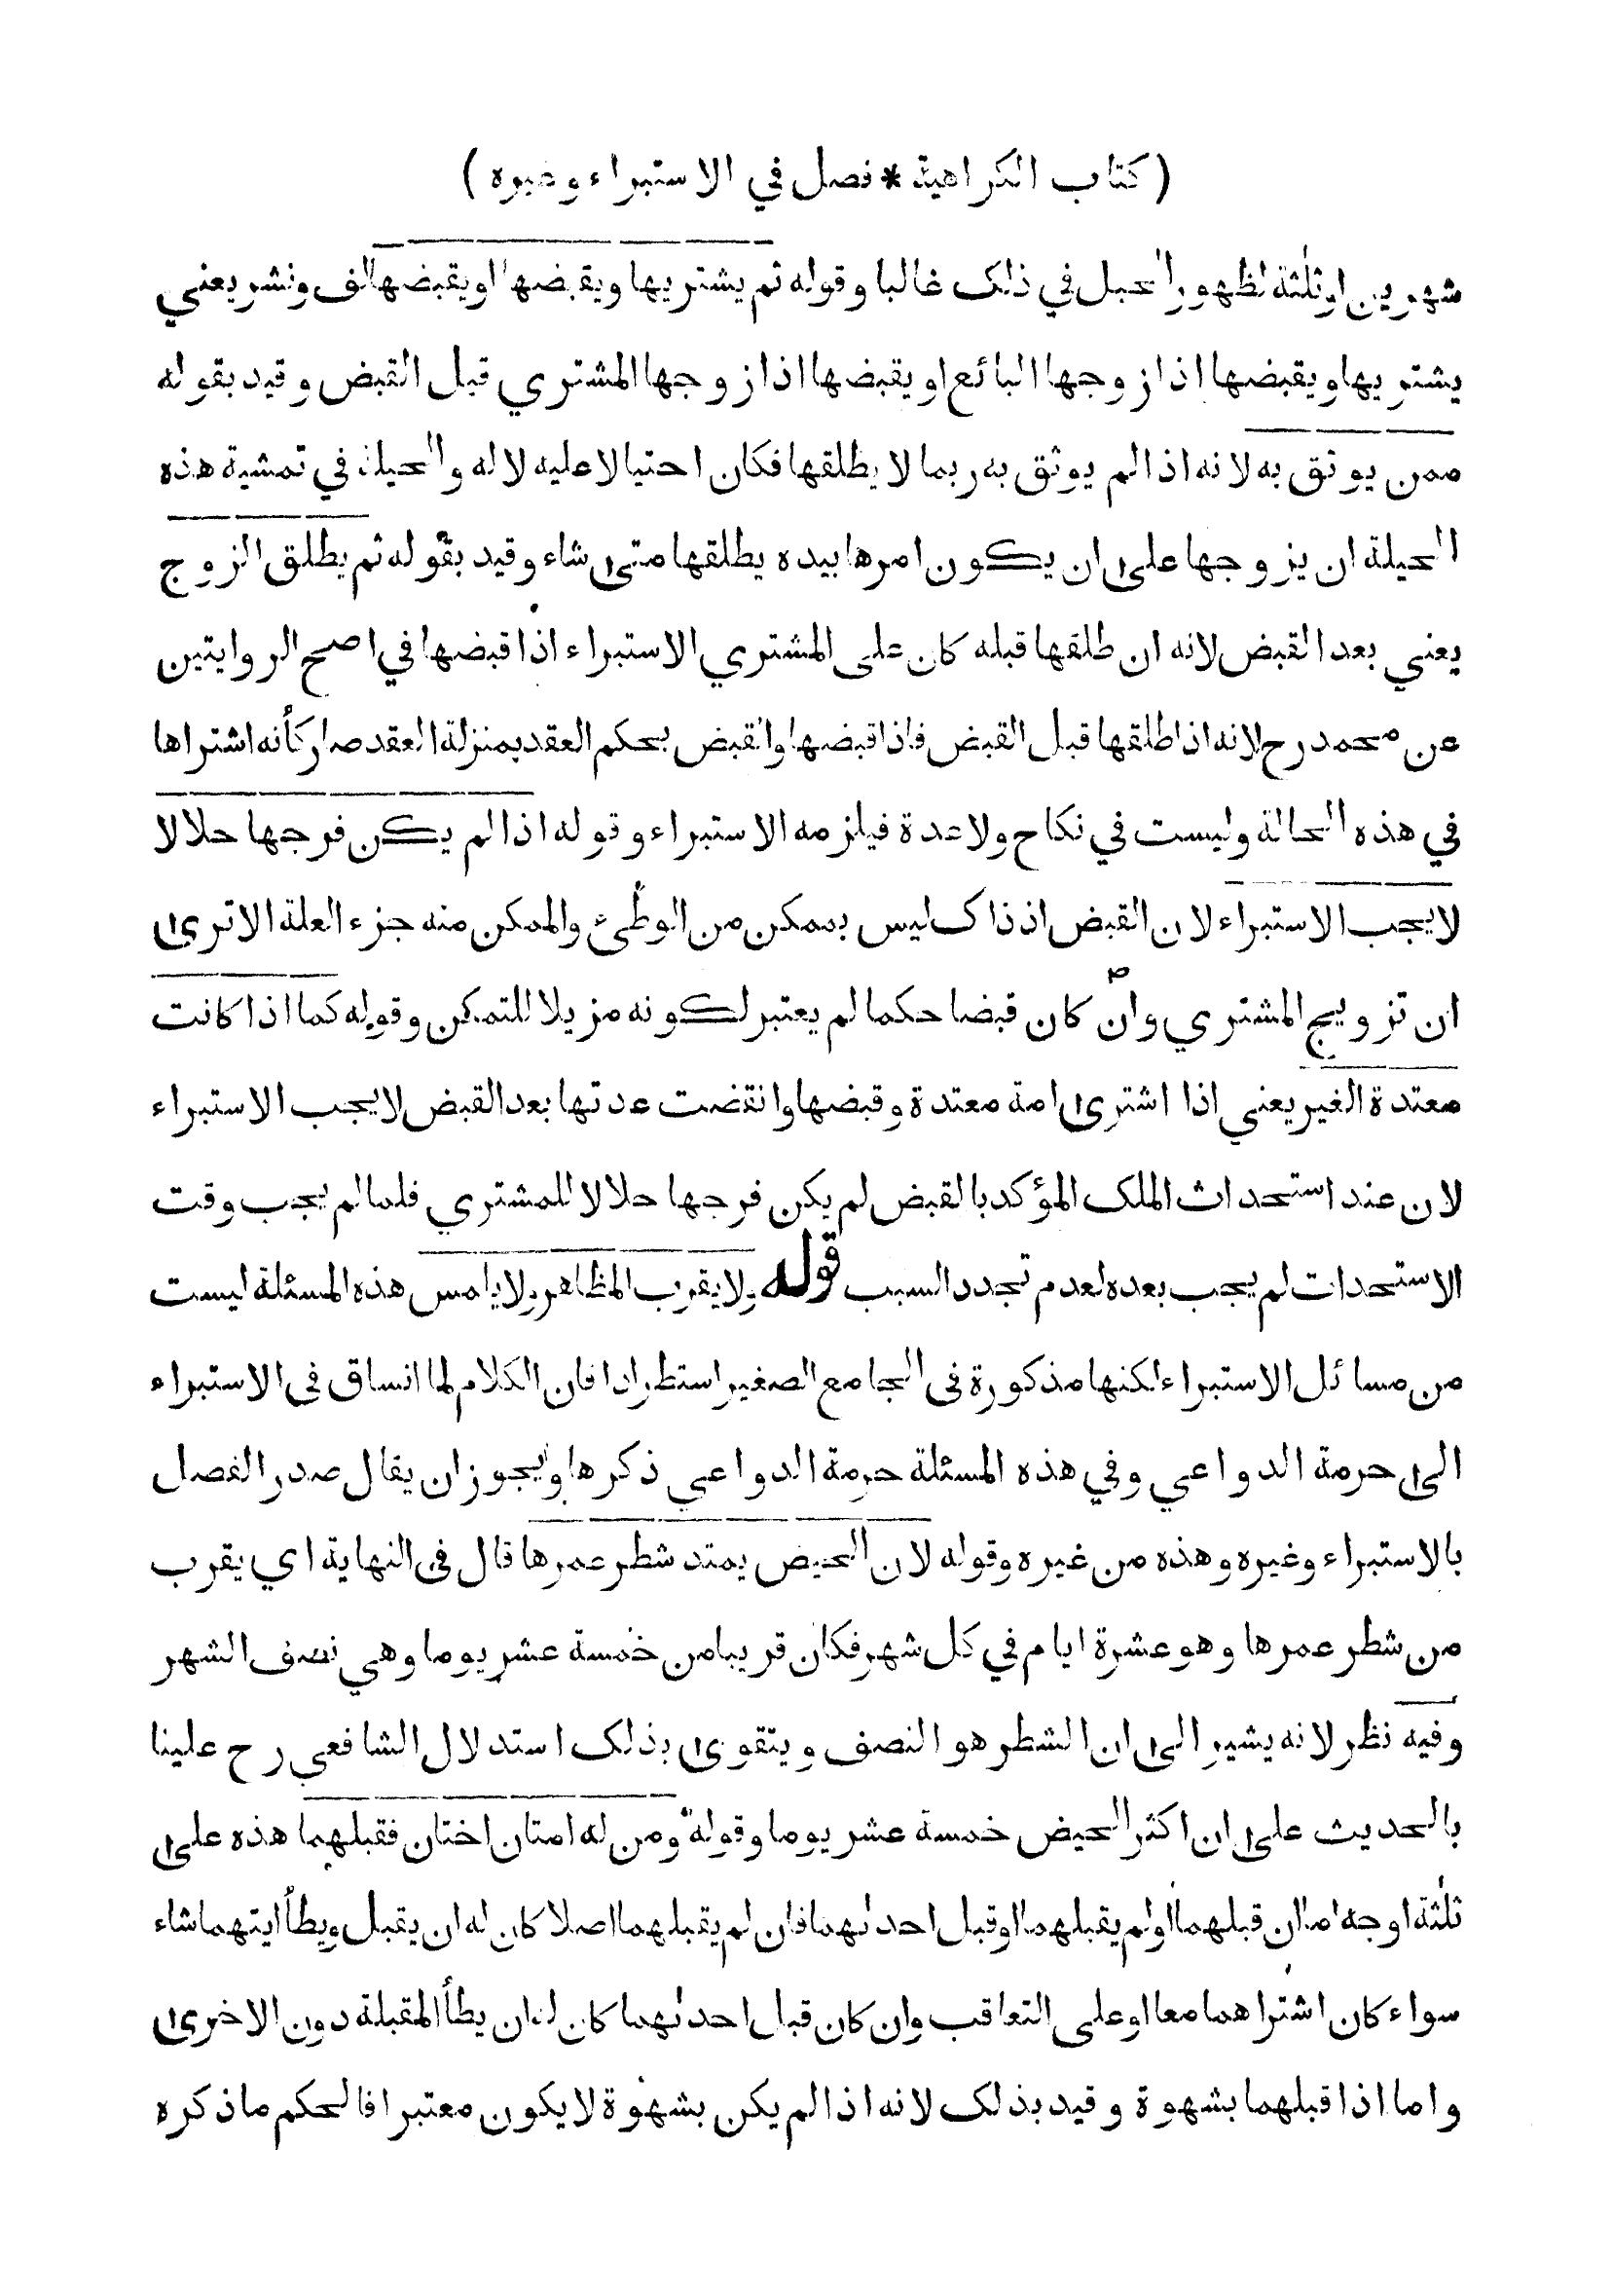 ( كتاب الكراهية * فصل في الاستبراء وغيره )
شهرين او ثلثة لظهور الحبل في ذلك غالبا وقوله ثم يشتريها ويقبضها او يقبضها لف ونشر يعني
يشتريها ويقبضها اذا زوجها البائع او يقبضها اذا زوجها المشتري قبل القبض وقيد بقوله
ممن يوثق به لانه اذا لم يوثق به ربما لا يطلقها فكان احتيالا عليه لا له والحيلة في تمشية هذه
الحيلة ان يزوجها على ان يكون امرها بيده يطلقها متى شاء وقيد بقوله ثم يطلق الزوج
يعني بعد القبض لانه ان طلقها قبله كان على المشتري الاستبراء اذا قبضها في اصح الروايتين
عن محمد رح لانه اذا طلقها قبل القبض فاذا قبضها والقبض بحكم العقد بمنزلة العقد صار كأنه اشتراها
في هذه الحالة وليست في نكاح ولا عدة فيلزمه الاستبراء وقوله اذا لم يكن فرجها حلالا
لا يجب الاستبراء لان القبض اذ ذاك ليس بممكن من الوطئ والممكن منه جزء العلة الا ترى
ان تزويج المشتري وان كان قبضا حكما لم يعتبر لكونه مزيلا للتمكن وقوله كما اذا كانت
معتدة الغير يعني اذا اشترى امة معتدة وقبضها وانقضت عدتها بعد القبض لا يجب الاستبراء
لان عند استحداث الملك المؤكد بالقبض لم يكن فرجها حلالا للمشتري فلما لم يجب وقت
الاستحداث لم يجب بعده لعدم تجدد السبب قوله ولا يقرب المظاهر ولا يلمس هذه المسئلة ليست
من مسائل الاستبراء لكنها مذكورة في الجامع الصغير استطرادا فان الكلام لما انساق في الاستبراء
الى حرمة الدواعي وفي هذه المسئلة حرمة الدواعي ذكرها ويجوز ان يقال صدر الفصل
بالاستبراء وغيره وهذه من غيره وقوله لان الحيض يمتد شطر عمرها قال في النهاية اي يقرب
من شطر عمرها وهو عشرة ايام في كل شهر فكان قريبا من خمسة عشر يوما وهي نصف الشهر
وفيه نظر لانه يشير الى ان الشطر هو النصف ويتقوى بذلك استدلال الشافعي رح علينا
بالحديث على ان اكثر الحيض خمسة عشر يوما وقوله ومن له امتان اختان فقبلهما هذه على
ثلثة اوجه اما ان قبلهما او لم يقبلهما او قبل احدٰهما فان لم يقبلهما اصلا كان له ان يقبل ويطأ ايتهما شاء
سواء كان اشتراهما معا او على التعاقب وان كان قبل احدٰهما كان له ان يطأ المقبلة دون الاخرى
واما اذا قبلهما بشهوة وقيد بذلك لانه اذا لم يكن بشهوة لا يكون معتبرا فالحكم ما ذكره